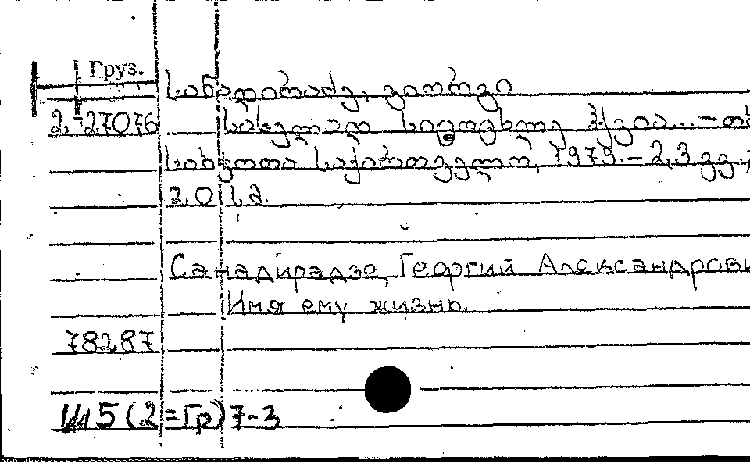 Груз.
სანადირაძე, გიორგი
2.-27076 სახელად სიცოცხლე ჰქვია...-თბ
საბჭოთა საქართველო, 1979.-2,3 გვ.;
20 სმ.
Санадирадзе, Георгий Александрови
Имя ему жизнь.
78287
Ш5(2=Гр)7-3